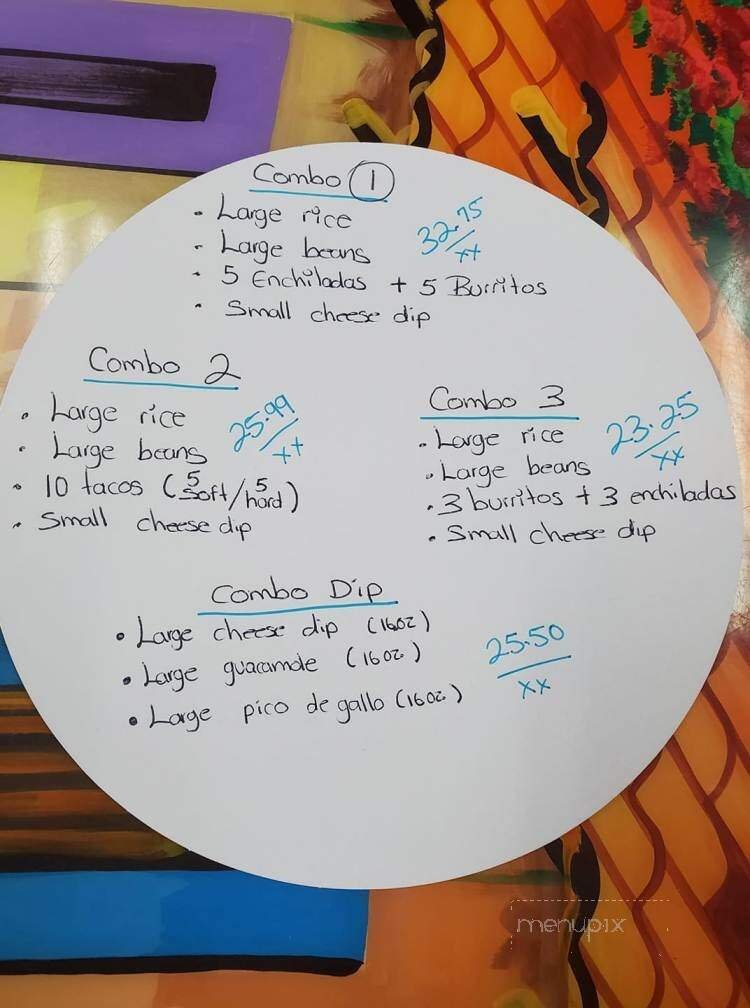 Combo 1
• Large rice
• Large beans
32.75/xx
• 5 Enchiladas + 5 Burritos
• Small cheese dip
Combo 2
• Large rice
• Large beans
25.99/xx
• 10 tacos (5 soft/5 hard)
• Small cheese dip
Combo 3
• Large rice
• Large beans
23.25/xx
• 3 burritos + 3 enchiladas
• Small cheese dip
Combo Dip
• Large cheese dip (16oz)
• Large guacamole (16oz)
• Large pico de gallo (16oz)
25.50
xx
menupix